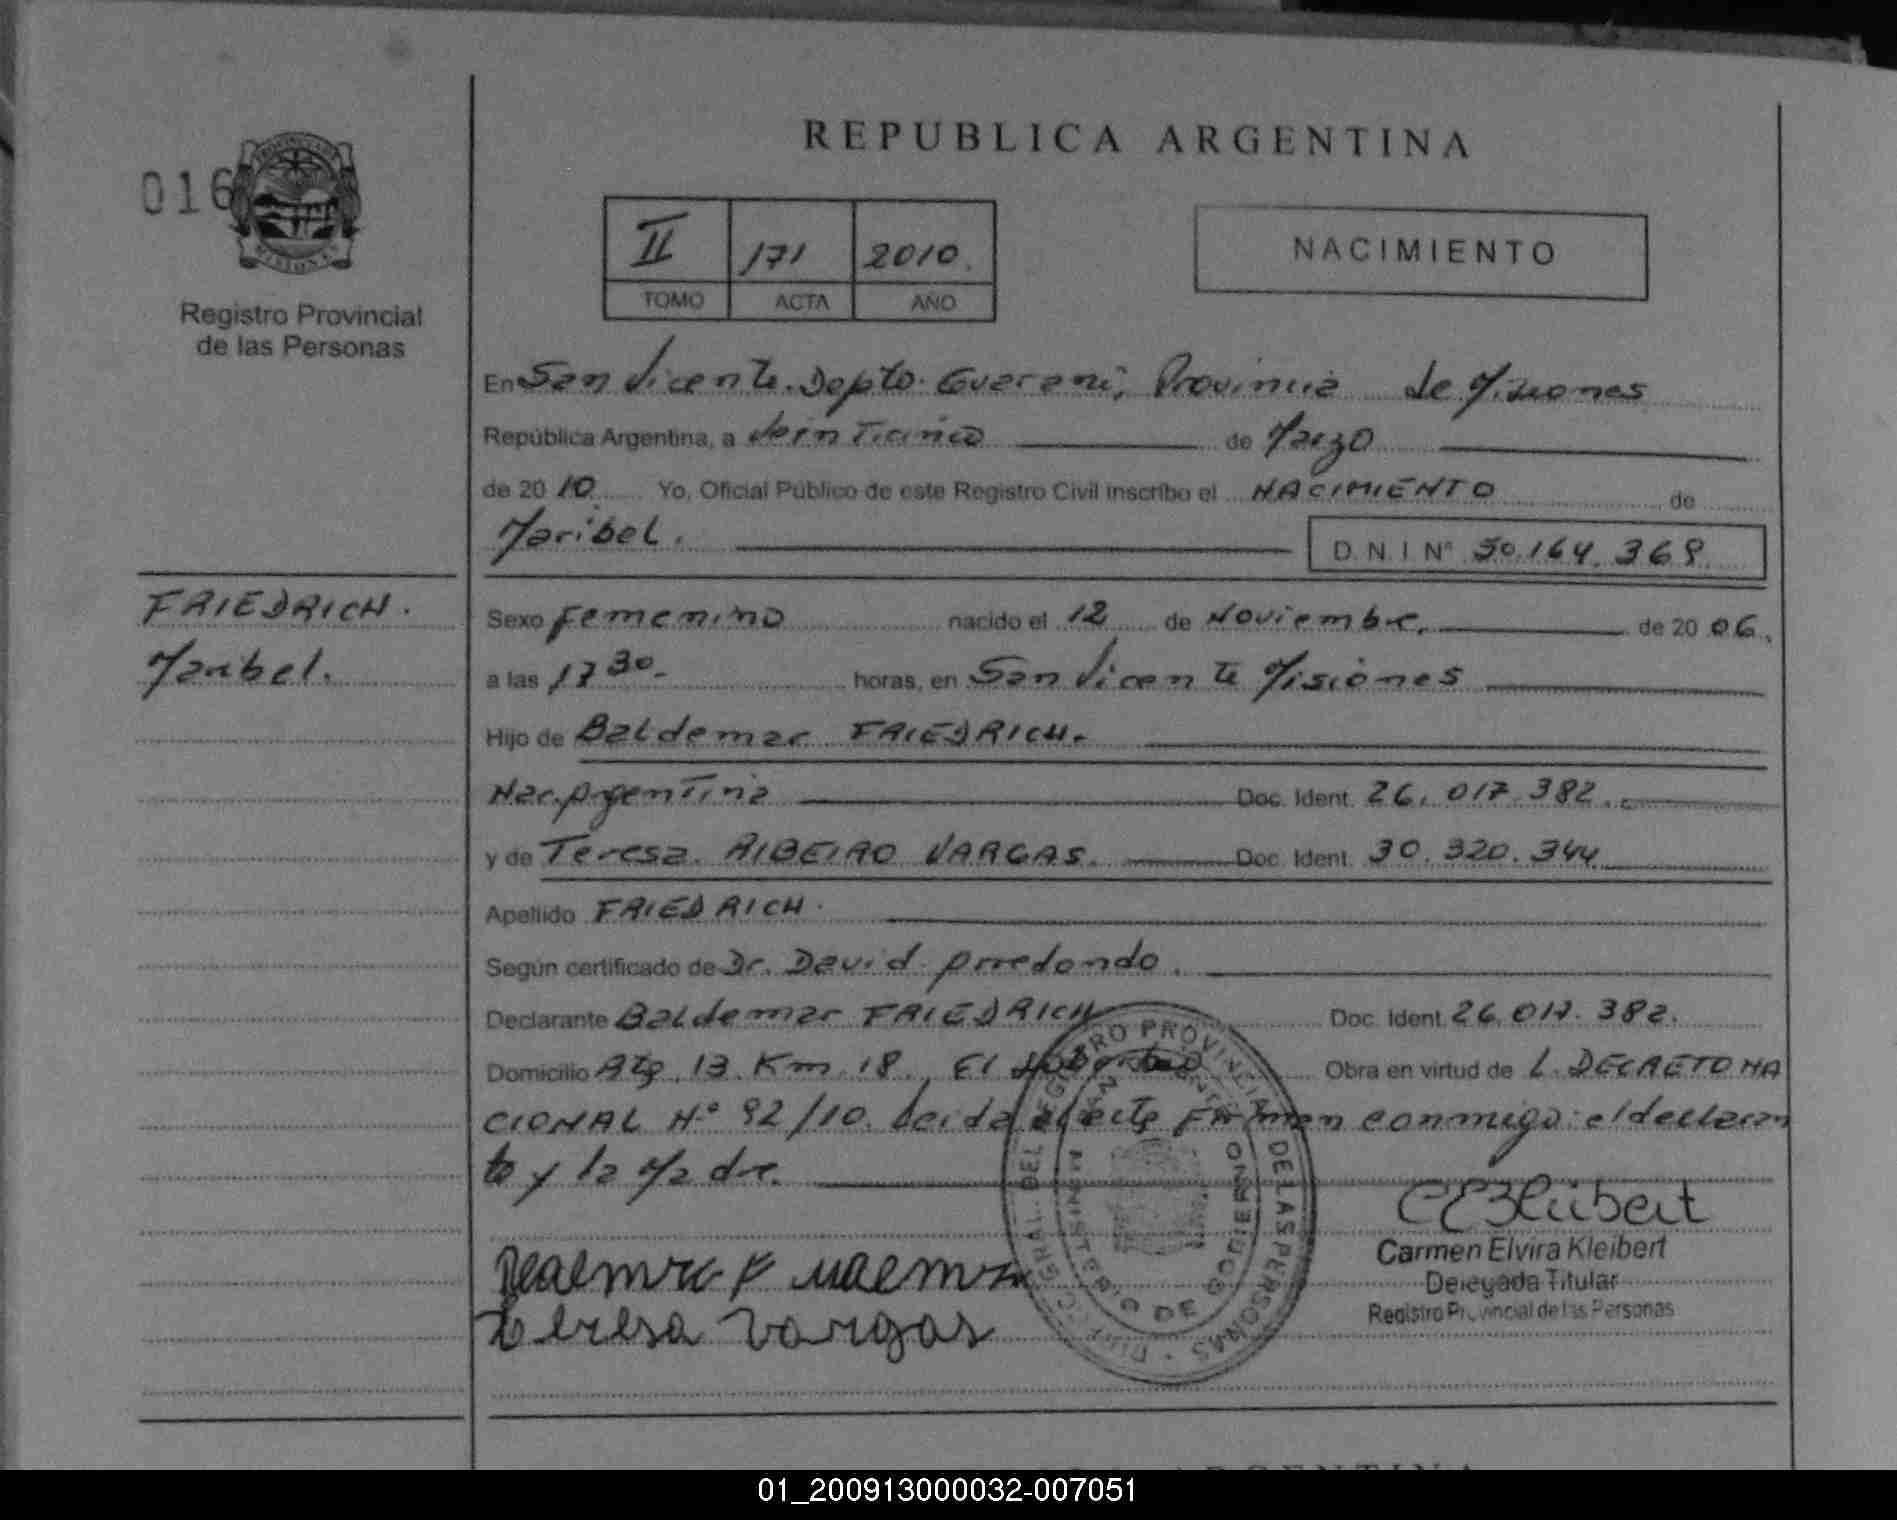 REPUBLICA ARGENTINA
016
II 171 2010.
TOMO ACTA AÑO
NACIMIENTO
Registro Provincial
de las Personas
En San Vicente. Depto. Guarani, Provincia de Misiones
República Argentina, a Veinticinco de Marzo
de 20 10 Yo, Oficial Público de este Registro Civil inscribo el NACIMIENTO de
Maribel.
D.N.I Nº 50.164.368.
FRIEDRICH.
Maribel.
Sexo Femenino nacido el 12 de Noviembre. de 20 06.
a las 17 30. horas, en San Vicente Misiones
Hijo de Baldemar FRIEDRICH.
Nac. Argentina Doc. Ident. 26.017.382.
y de Teresa RIBEIRO VARGAS. Doc. Ident. 30.320.344
Apellido FRIEDRICH.
Según certificado de Dr. David Arredondo.
Declarante Baldemar FRIEDRICH Doc. Ident. 26.017.382.
Domicilio Rta. 13 Km. 18. El Obra en virtud de L. DECRETO NA
CIONAL Nº 92/10. Leida el acta Firman conmigo: el declaran
te y la Madre.
DEL REGISTRO PROVINCIAL DE LAS PERSONAS
MINISTERIO DE GOBIERNO
Carmen Elvira Kleibert
Delegada Titular
Registro Provincial de las Personas
Teresa Vargas
01_200913000032-007051